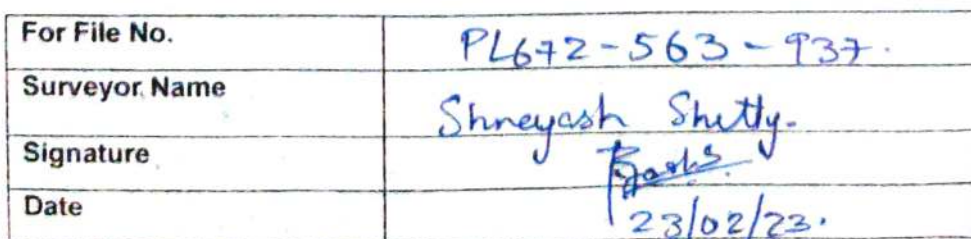 For File No. PL672-563-937.
Surveyor Name Shreyash Shetty.
Signature
Date 23/02/23.